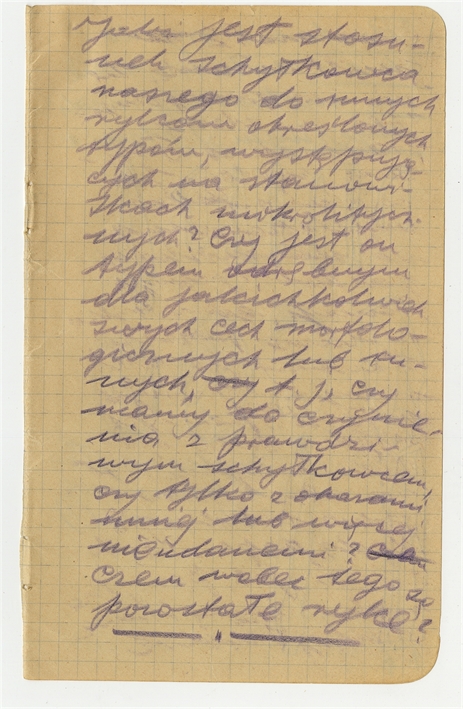 Jaki jest stosu-
nek schyłkowca
naszego do innych
rylców określonych
typów, występują-
cych na stanowi-
skach mikrolitycz-
nych? Czy jest on
typem odrębnym
dla jakichkolwiek
swych cech morfolo-
gicznych lub in-
nych, czy t. j. czy
mamy do czynie-
nia z prawdzi-
wym schyłkowcem,
czy tylko z okazami
mniej lub więcej
nieudanemi?
czem wobec tego są
pozostałe rylce?